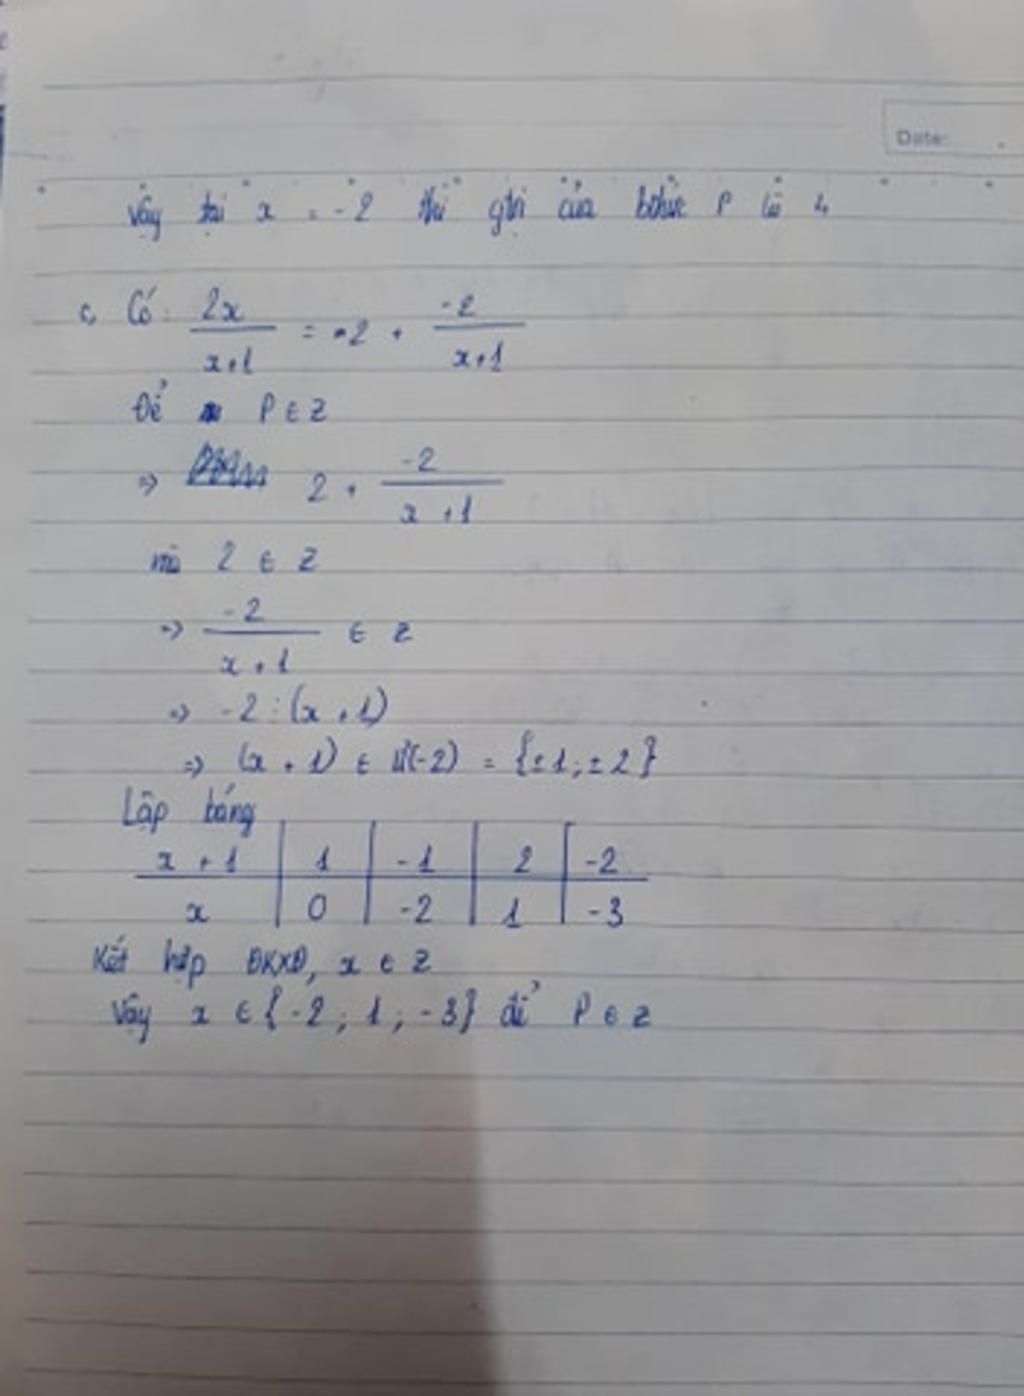 Date:
Vậy tại x = -2 thì gtrị của bthức P là 4
c, Có: 2x/x+1 = 2 + -2/x+1
Để P ∈ Z
=> 2 + -2/x+1
mà 2 ∈ Z
=> -2/x+1 ∈ Z
=> -2 ⋮ (x+1)
=> (x+1) ∈ Ư(-2) = {±1; ±2}
Lập bảng
x+1 | 1 | -1 | 2 | -2
x | 0 | -2 | 1 | -3
Kết hợp ĐKXĐ, x ∈ Z
Vậy x ∈ {-2; 1; -3} để P ∈ Z